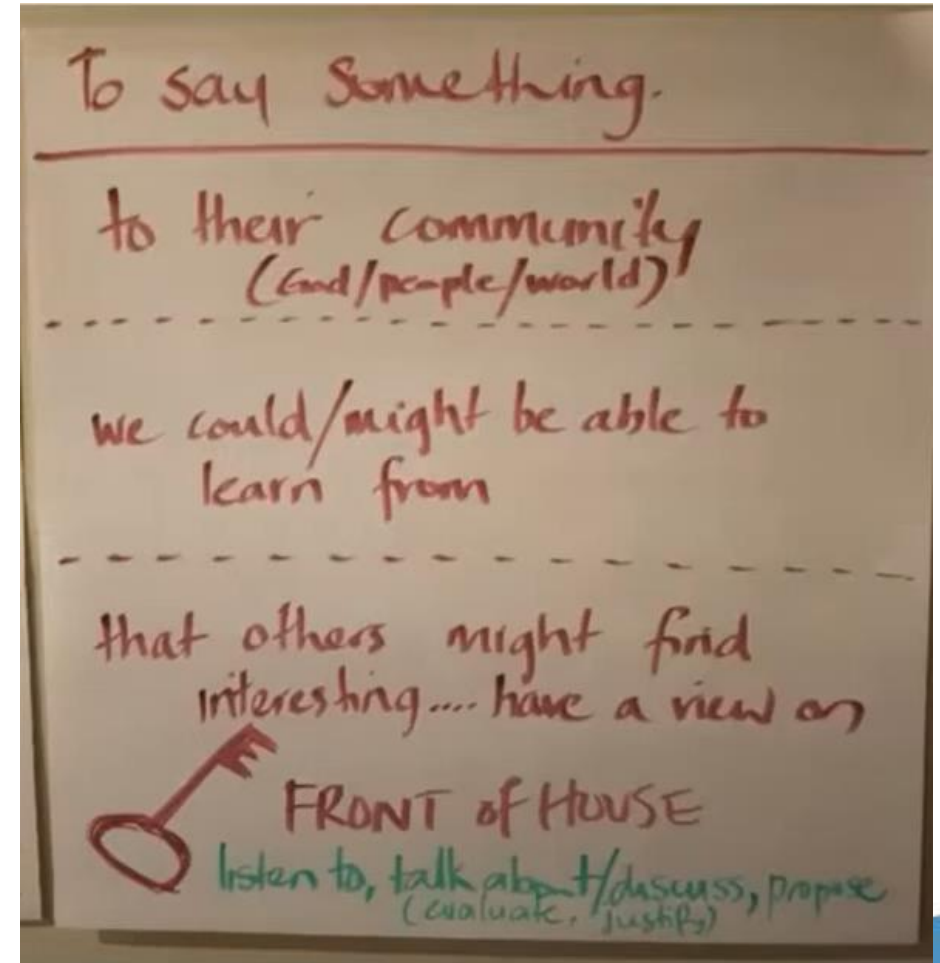 To say Something.
to their community
(God/people/world)
we could/might be able to
learn from
that others might find
interesting.... have a view on
FRONT of HOUSE
listen to, talk about/discuss, propose
(evaluate, justify)